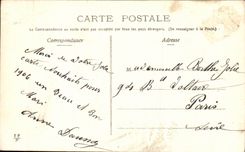 CARTE POSTALE
La Correspondance au recto n'est pas acceptée par tous les pays étrangers. (Se renseigner à la Poste).
Correspondance
Adresse
Merci de votre Jolie
carte Souhaits pour
1906 un Beau et Bon
Mari
Mademoiselle Berthe
94 Bd Voltaire
Paris
Seine